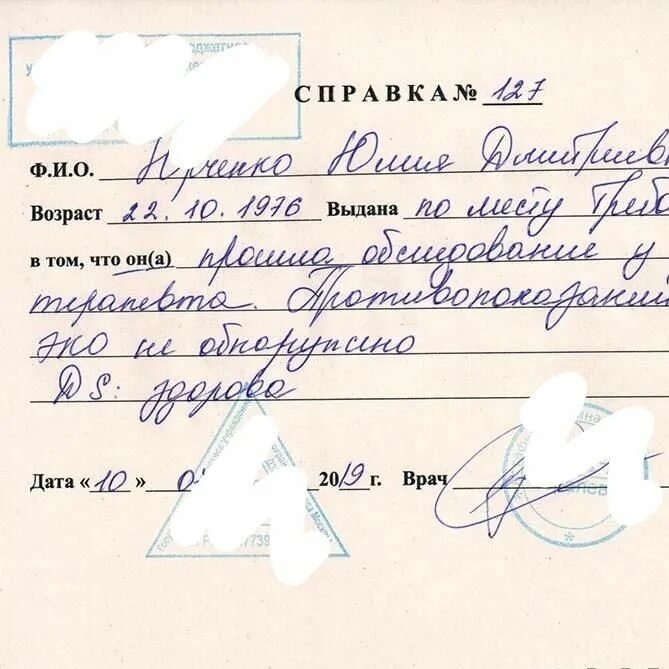 юджетно
СПРАВКА № 127
Ф.И.О. Юрченко Юлия Дмитриевн
Возраст 22.10.1976 Выдана по месту Треб
в том, что он(а) прошла обследование у
терапевта. Противопоказаний
эко не обнаружено
DS: здорова
Дата «10» 0 2019 г. Врач